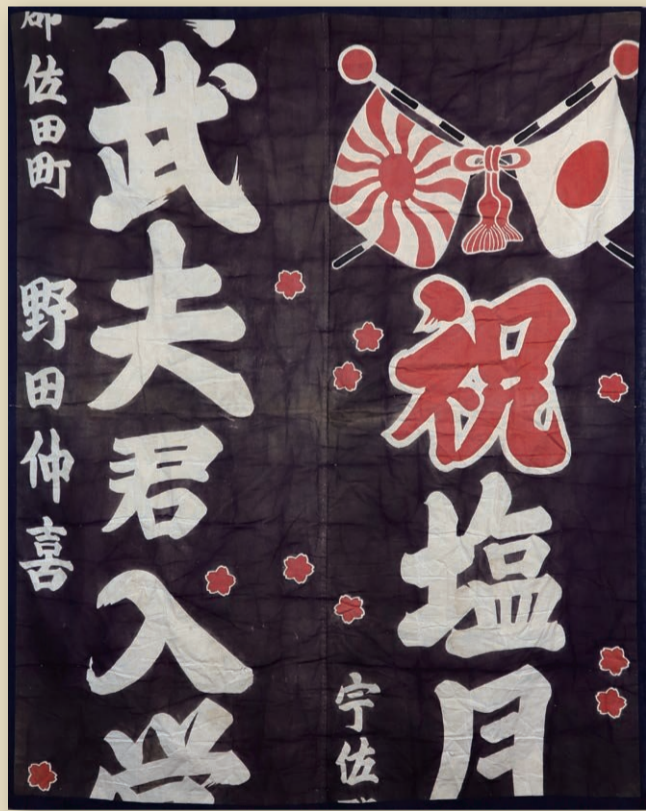 祝塩月
宇佐
武夫君入
佐田町 野田仲喜